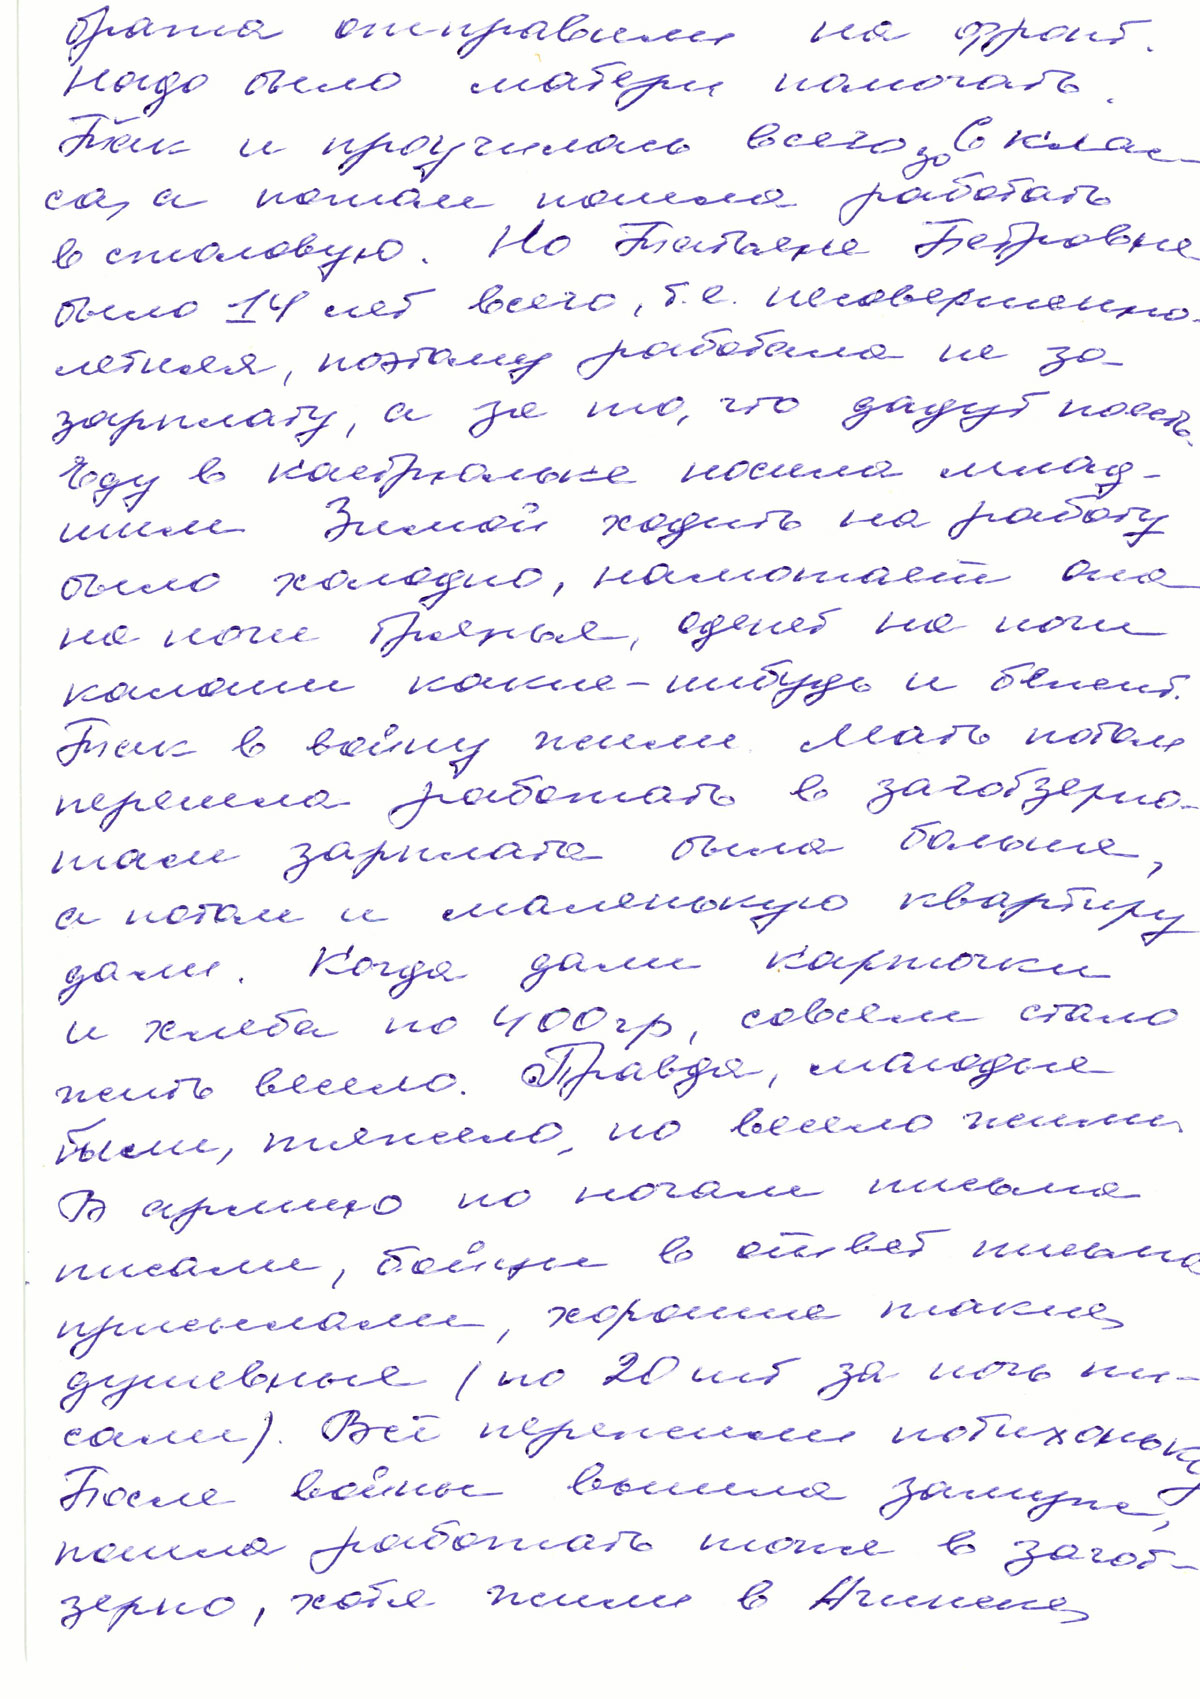 брата отправили на фронт.
Надо было матери помогать.
Так и проучилась всего до 6 клас-
са, а потом пошла работать
в столовую. Но Татьяне Петровне
было 14 лет всего, т.е. несовершенно-
летняя, поэтому работала не за
зарплату, а за то, что дадут поесть.
Еду в кастрюльке носила млад-
шим Зимой ходить на работу
было холодно, намотает она
на ноги тряпья, оденет на ноги
калоши какие-нибудь и бежит.
Так в войну жили. Мать потом
перешла работать в заготзерно-
там зарплата была больше,
а потом и маленькую квартиру
дали. Когда дали карточки
и хлеба по 400гр, совсем стало
жить весело. Правда, молодые
были, тяжело, но весело жили
В армию по ночам письма
писали, бойцы в ответ письма
присылали, хорошие такие,
душевные (по 20 шт за ночь пи-
сали). Всё пережили потихоньку
После войны вышла замуж,
пошла работать тоже в загот-
зерно, хотя жили в Ачинске,